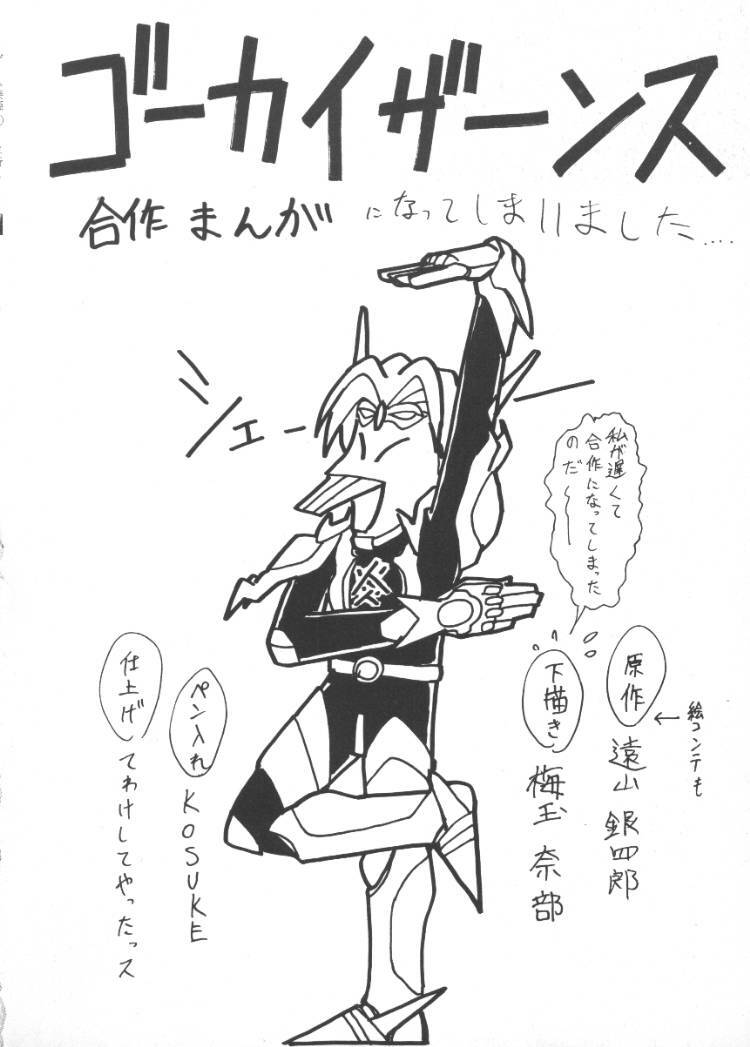 ゴーカイザーンス
合作まんがになってしまいました….
シェー
私が遅くて
合作になってしまった
のだ〜
原作 遠山 銀四郎
←絵コンテも
下描き 梅玉 奈部
ペン入れ KOSUKE
仕上げ てわけしてやったっス